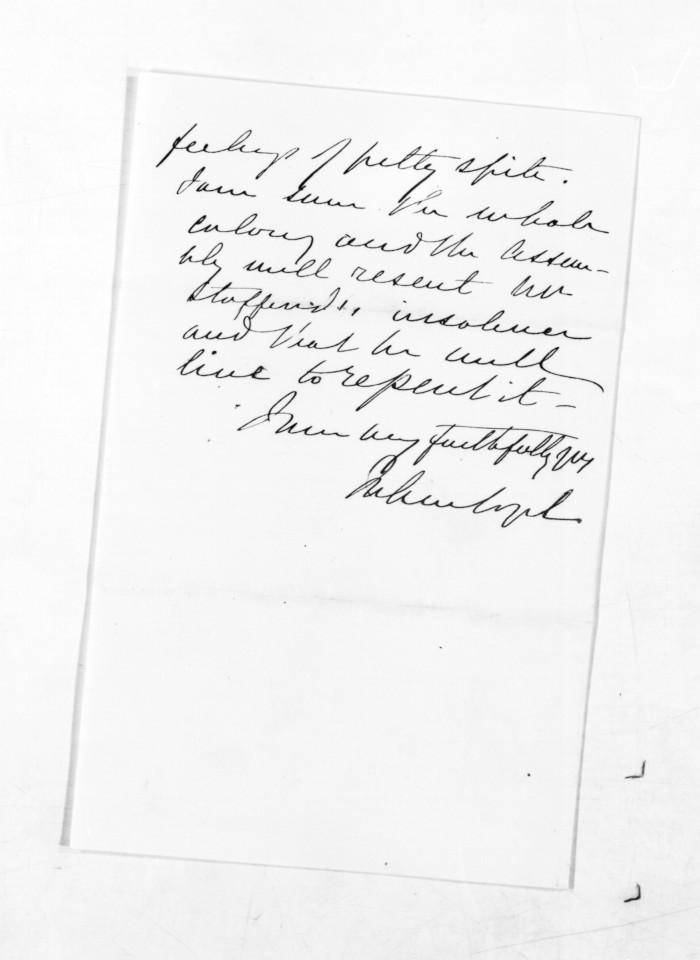 feelings of petty spite.
I am sure the whole
colony and the Assem-
bly will resent Mr
Stafford's insolence
and that he will
live to repent it -
I am very faithfully yrs